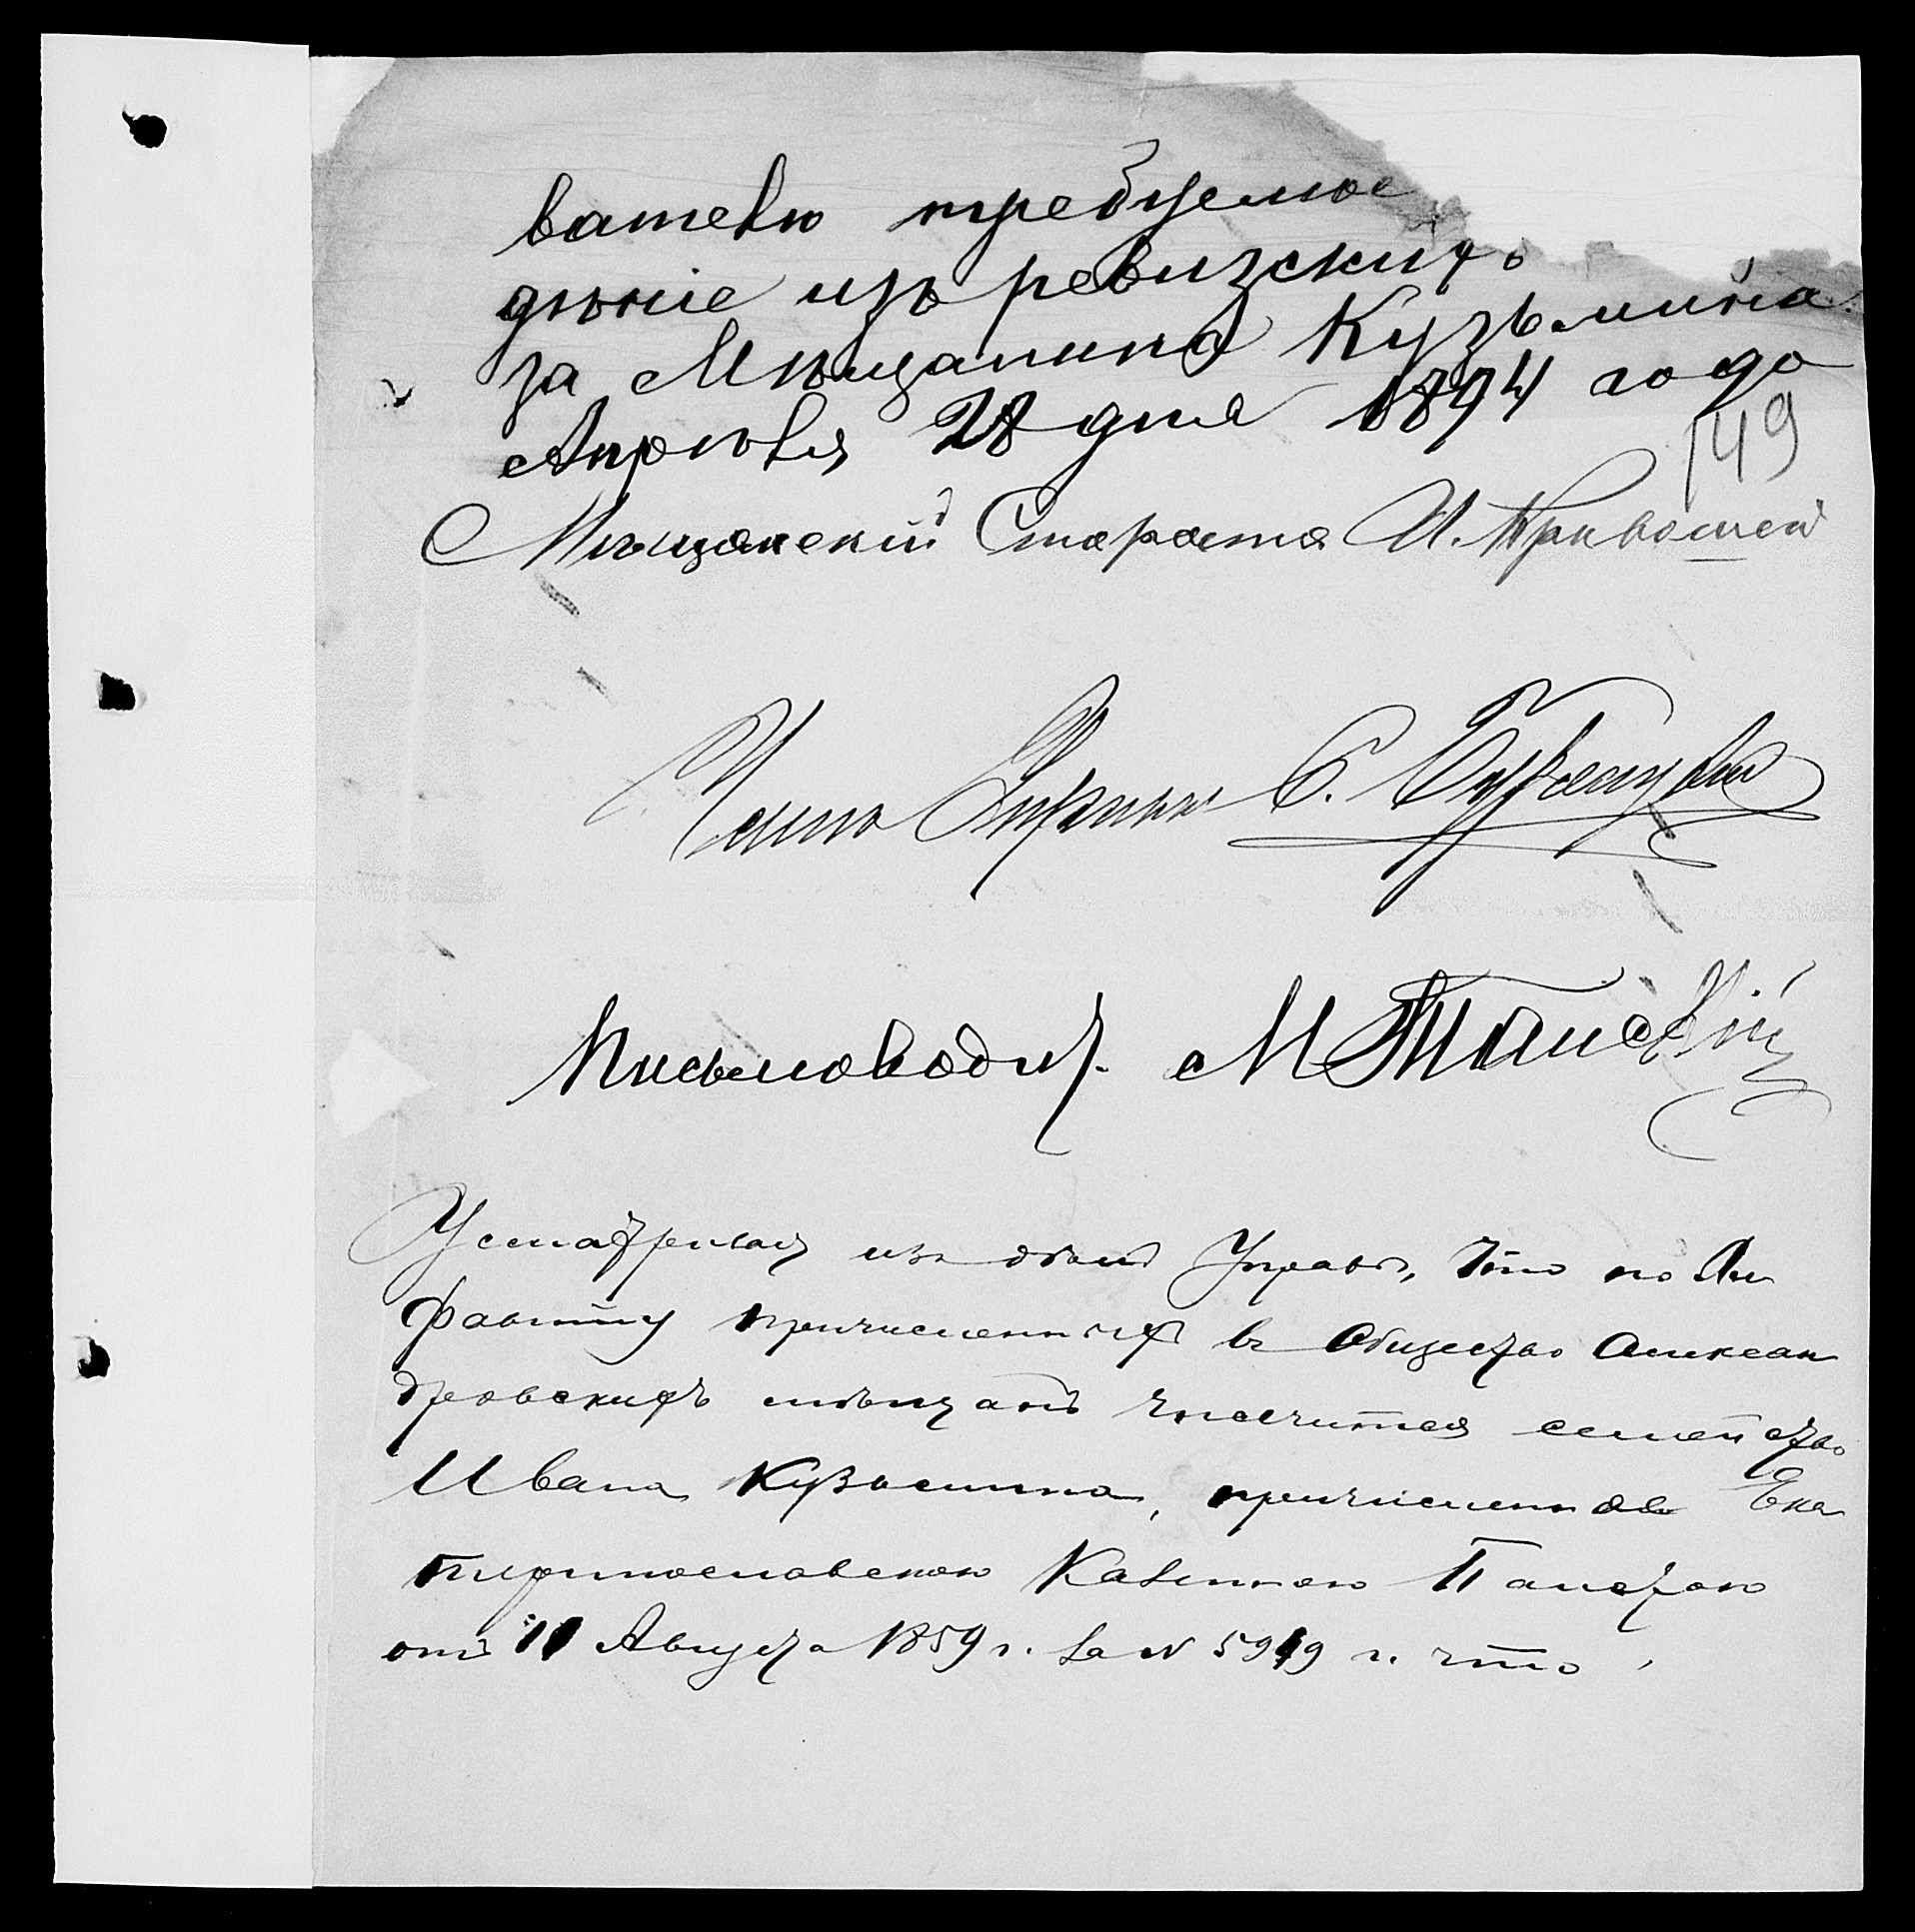 вателю требуемое
дѣніе изъ ревизскихъ
за Мѣщанина Кузьмина
Апрѣля 28 дня 1894 года
149
Мѣщанскій Староста И. Кривошей
Члены Управы С.
Письмоводит. М
Усматривая изъ дѣлъ Управы, что по Ал
фавиту причисленныхъ въ Общество Алексан
дровскихъ мѣщанъ числится семейство
Ивана Кузьмина, причисленное Ека
теринославскою Казенною Палатою
отъ 11 Августа 1859 г. за № 5949 г. что